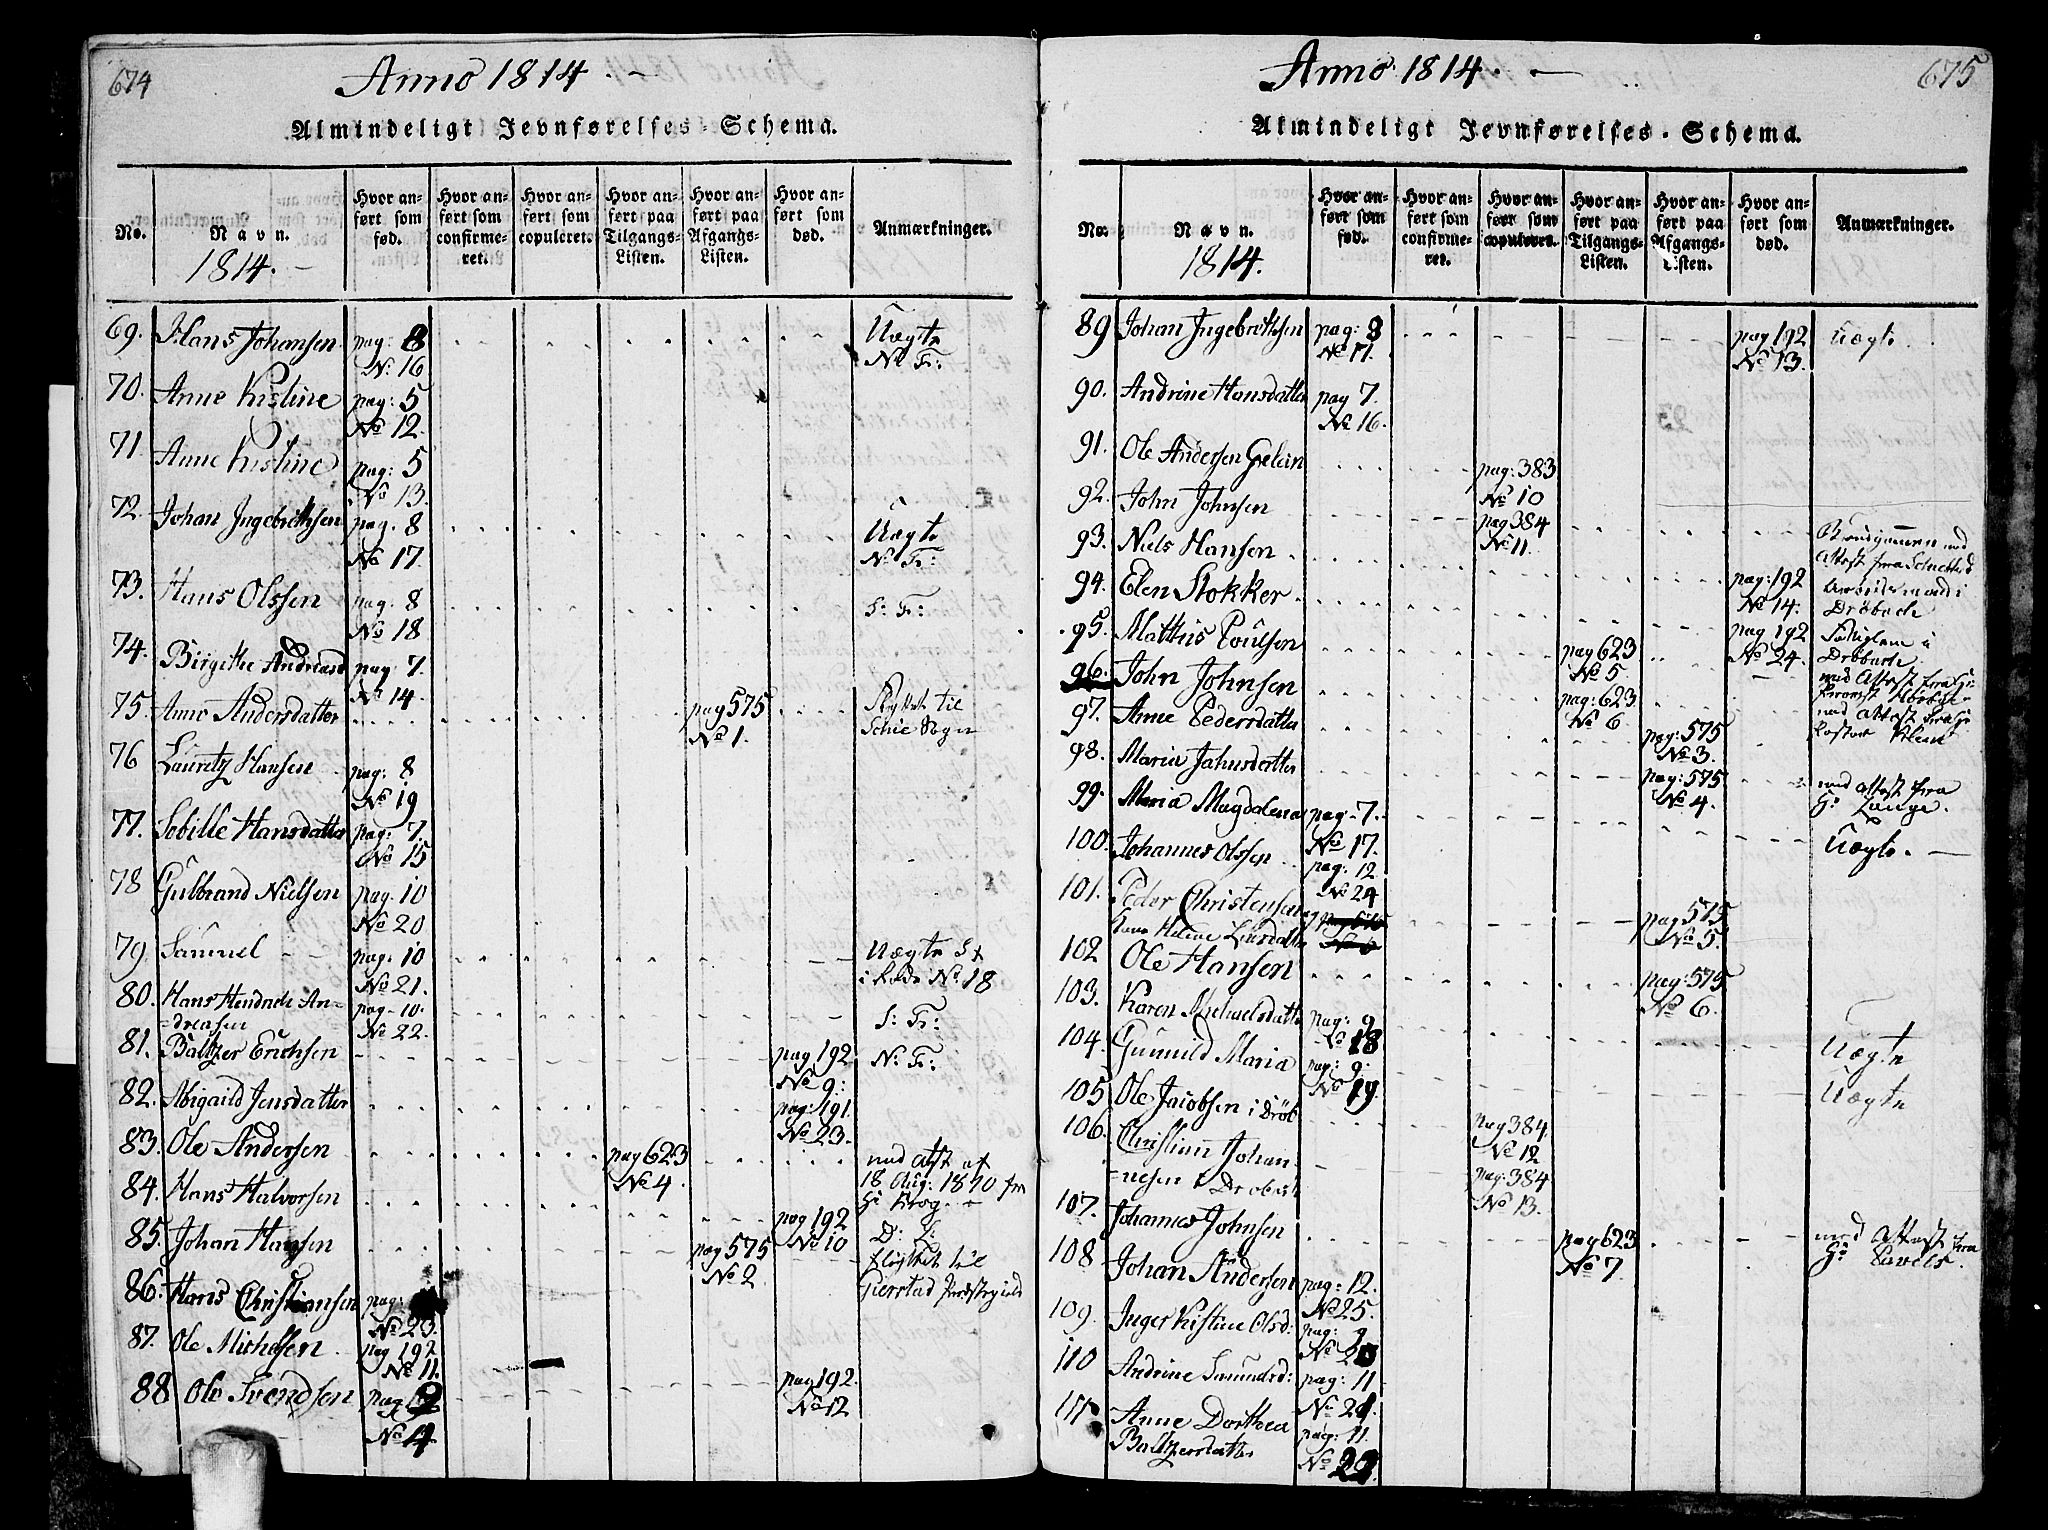 674
Anno 1814. -
Almindeligt Jevnførelses-Schema.
No.
Navn.
1814. -
Hvor anført som fød.
Hvor anført som confirmeret.
Hvor anført som copuleret.
Hvor anført paa Tilgangs-Listen.
Hvor anført paa Afgangs-Listen.
Hvor anført som død.
Anmærkninger.
69. Hans Johansen pag: 8 Uægte
No 16 N. Fr:
70. Anne Kistine pag: 5
No 12.
71. Anne Kistine pag: 5
No 13.
72. Johan Ingebrithsen pag. 8 Uægte
No 17. N. Fr:
73. Hans Olssen pag: 8 S: Fr:
No 18
74. Birgithe Andreasd pag 7.
No 14.
75. Anne Andersdatter pag 575 flyttet til
No 1. Schie Sogn
76 Lauritz Hansen pag: 8
No 19
77. Sebille Hansdatter pag: 7.
No 15
78 Gulbrand Nielsen pag. 10
No 20
79. Samuel pag: 10 Uægte
No 21. No 18
80. Hans Hendrich An= pag. 10. S: Fr:
=dreasen No 22.
81. Baltzer Erichsen pag 192 N: Fr:
No 9:
82. Abigaild Jensdatter pag: 191.
No 23.
83. Ole Andersen pag 623 med attst af
No 4. 18 Aug: 1810 fra
84. Hans Halvorsen pag 192 Hr Krog.
No 10 D: L:
85. Johan Hansen pag 575 flyttet til
No 2 Gierstad Præstegield
86. Hans Christiansen pag:
No 23.
87. Ole Michelsen pag 192
No 11.
88 Ole Svendsen pag 9 pag 192.
No 4 No 12
675
Anno 1814. -
Almindeligt Jevnførelses-Schema.
No.
Navn.
1814.
Hvor anført som fød.
Hvor anført som confirmeret.
Hvor anført som copuleret.
Hvor anført paa Tilgangs-Listen.
Hvor anført paa Afgangs-Listen.
Hvor anført som død.
Anmærkninger.
89 Johan Ingebrithsen pag: 8 pag 192 Uægte.
No 17. No 13.
90. Andrine Hansdatter pag 7.
No 16.
91. Ole Andersen pag: 383
No 10
92. John Johnsen pag 384
No 11.
93. Niels Hansen Brudgommen med
Attest fra
94. Elen Stokker pag: 192 Arbeidsmand i
No 14. Drøbach
95. Mathis Poulsen pag 623 pag 192
No 5. No 24. Drøbach
96. John Johnsen pag: 623 med Attest fra Hr
No 6
97. Anne Pedersdatter pag: 575 med Attest fra Hr
No 3. Pastor
98. Maria Jahnsdatter pag: 575 med Attest fra
No 4. Hr Lange.
99. Maria Magdalena pag. 7. Uægte.
No 17.
100. Johannes Olssen pag. 12
No 24
101. Peder Christensen pag 575
Anne Helene Larsdatter No 5.
102 Ole Hansen pag: 575
No 6.
103. Karen Michaelsdatter pag: 9
No 18 Uægte
104. Gunnild Maria pag: 9.
No 19. Uægte
105 Ole Jacobsen i Drøb pag 384.
No 12
106. Christian Johan- pag: 384
=nesen i Drøbach No 13.
107. Johannes Johnsen pag 623 med Attest fra
No 7 Hr Pavels.
108 Johan Andersen pag: 12.
No 25.
109. Inger Kistine Olsd: pag: 9
No 20
110 Andrine Samuelsd: pag: 11
No 21.
111 Anne Dorthea pag: 11.
Baltzersdatter No 22.